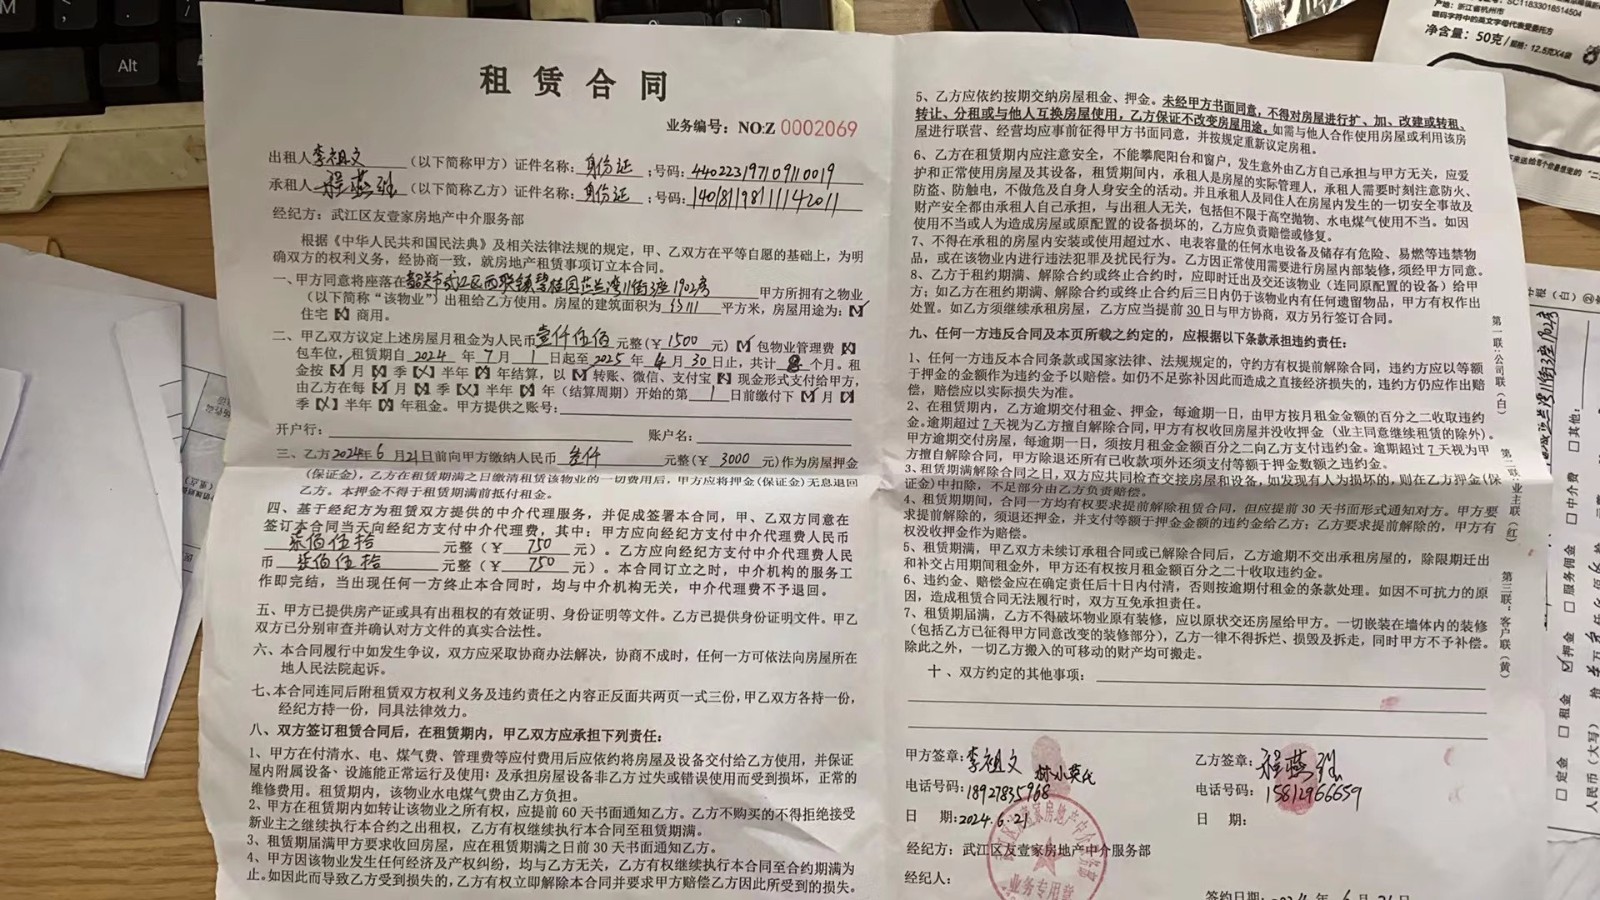 Alt
租赁合同
业务编号：NO:Z 0002069
出租人李祖文（以下简称甲方）证件名称：身份证：号码：440223197109110019
承租人程燕珍（以下简称乙方）证件名称：身份证；号码：140181198111142011
经纪方：武江区友壹家房地产中介服务部
根据《中华人民共和国民法典》及相关法律法规的规定，甲、乙双方在平等自愿的基础上，为明
确双方的权利义务，经协商一致，就房地产租赁事项订立本合同。
一、甲方同意将座落在韶关市武江区西联镇碧桂园芷兰湾川街3座1902房 甲方所拥有之物业
（以下简称“该物业”）出租给乙方使用。房屋的建筑面积为 平方米，房屋用途为：【√】
住宅【】商用。
二、甲乙双方议定上述房屋月租金为人民币壹仟伍佰元整（￥1500元）【】包物业管理费【】
包车位，租赁期自2024年7月1日起至2025年4月30日止，共计 个月。租
金按【】月【】季【】半年【】年结算，以【】转账、微信、支付宝【】现金形式支付给甲方，
由乙方在每【】月【】季【】半年【】年（结算周期）开始的第1日前缴付下【】月【】
季【】半年【】年租金。甲方提供之账号：
开户行： 账户名：
三、乙方2024年6月21日前向甲方缴纳人民币叁仟元整（￥3000元）作为房屋押金
（保证金），乙方在租赁期满之日缴清租赁该物业的一切费用后，甲方应将押金（保证金）无息退回
乙方。本押金不得于租赁期满前抵付租金。
四、基于经纪方为租赁双方提供的中介代理服务，并促成签署本合同，甲、乙双方同意在
签订本合同当天向经纪方支付中介代理费，其中：甲方应向经纪方支付中介代理费人民币
柒佰伍拾元整（￥750元）。乙方应向经纪方支付中介代理费人民
币柒佰伍拾元整（￥750元）。本合同订立之时，中介机构的服务工
作即完结，当出现任何一方终止本合同时，均与中介机构无关，中介代理费不予退回。
五、甲方已提供房产证或具有出租权的有效证明、身份证明等文件。乙方已提供身份证明文件。甲乙
双方已分别审查并确认对方文件的真实合法性。
六、本合同履行中如发生争议，双方应采取协商办法解决，协商不成时，任何一方可依法向房屋所在
地人民法院起诉。
七、本合同连同后附租赁双方权利义务及违约责任之内容正反面共两页一式三份，甲乙双方各持一份，
经纪方持一份，同具法律效力。
八、双方签订租赁合同后，在租赁期内，甲乙双方应承担下列责任：
1、甲方在付清水、电、煤气费、管理费等应付费用后应依约将房屋及设备交付给乙方使用，并保证
屋内附属设备、设施能正常运行及使用；及承担房屋设备非乙方过失或错误使用而受到损坏，正常的
维修费用。租赁期内，该物业水电煤气费由乙方负担。
2、甲方在租赁期内如转让该物业之所有权，应提前60天书面通知乙方。乙方不购买的不得拒绝接受
新业主之继续执行本合约之出租权，乙方有权继续执行本合同至租赁期满。
3、租赁期届满甲方要求收回房屋，应在租赁期满之日前30天书面通知乙方。
4、甲方因该物业发生任何经济及产权纠纷，均与乙方无关，乙方有权继续执行本合同至合约期满为
止。如因此而导致乙方受到损失的，乙方有权立即解除本合同并要求甲方赔偿乙方因此所受到的损失。
5、乙方应依约按期交纳房屋租金、押金。未经甲方书面同意，不得对房屋进行扩、加、改建或转租、
转让、分租或与他人互换房屋使用，乙方保证不改变房屋用途。如需与他人合作使用房屋或利用该房
屋进行联营、经营均应事前征得甲方书面同意，并按规定重新议定房租。
6、乙方在租赁期内应注意安全，不能攀爬阳台和窗户，发生意外由乙方自己承担与甲方无关，应爱
护和正常使用房屋及其设备，租赁期间内，承租人是房屋的实际管理人，承租人需要时刻注意防火、
防盗、防触电，不做危及自身人身安全的活动。并且承租人及同住人在房屋内发生的一切安全事故及
财产安全都由承租人自己承担，与出租人无关，包括但不限于高空抛物、水电煤气使用不当。如因
使用不当或人为造成房屋或原配置的设备损坏的，乙方应负责赔偿或修复。
7、不得在承租的房屋内安装或使用超过水、电表容量的任何水电设备及储存有危险、易燃等违禁物
品，或在该物业内进行违法犯罪及扰民行为。乙方因正常使用需要进行房屋内部装修，须经甲方同意。
8、乙方于租约期满、解除合约或终止合约时，应即时迁出及交还该物业（连同原配置的设备）给甲
方；如乙方在租约期满、解除合约或终止合约后三日内仍于该物业内有任何遗留物品，甲方有权作出
处置。如乙方须继续承租房屋，乙方应当提前30日与甲方协商，双方另行签订合同。
九、任何一方违反合同及本页所载之约定的，应根据以下条款承担违约责任：
1、任何一方违反本合同条款或国家法律、法规规定的，守约方有权提前解除合同，违约方应以等额
于押金的金额作为违约金予以赔偿。如仍不足弥补因此而造成之直接经济损失的，违约方仍应作出赔
偿，赔偿应以实际损失为准。
2、在租赁期内，乙方逾期交付租金、押金，每逾期一日，由甲方按月租金金额的百分之二收取违约
金。逾期超过7天视为乙方擅自解除合同，甲方有权收回房屋并没收押金（业主同意继续租赁的除外）。
甲方逾期交付房屋，每逾期一日，须按月租金金额百分之二向乙方支付违约金。逾期超过7天视为甲
方擅自解除合同，甲方除退还所有已收款项外还须支付等额于押金数额之违约金。
3、租赁期满解除合同之日，双方应共同检查交接房屋和设备，如发现有人为损坏的，则在乙方押金（保
证金）中扣除，不足部分由乙方负责赔偿。
4、租赁期期间，合同一方均有权要求提前解除租赁合同，但应提前30天书面形式通知对方。甲方要
求提前解除的，须退还押金，并支付等额于押金金额的违约金给乙方；乙方要求提前解除的，甲方有
权没收押金作为赔偿。
5、租赁期满，甲乙双方未续订承租合同或已解除合同后，乙方逾期不交出承租房屋的，除限期迁出
和补交占用期间租金外，甲方还有权按月租金金额百分之二十收取违约金。
6、违约金、赔偿金应在确定责任后十日内付清，否则按逾期付租金的条款处理。如因不可抗力的原
因，造成租赁合同无法履行时，双方互免承担责任。
7、租赁期届满，乙方不得破坏物业原有装修，应以原状交还房屋给甲方。一切嵌装在墙体内的装修
（包括乙方已征得甲方同意改变的装修部分），乙方一律不得拆烂、损毁及拆走，同时甲方不予补偿。
除此之外，一切乙方搬入的可移动的财产均可搬走。
十、双方约定的其他事项：
甲方签章：李祖文
电话号码：18927835968
日 期：2024.6.21
经纪方：武江区友壹家房地产中介服务部
经纪人：
乙方签章：程燕珍
电话号码：15812966659
日 期：
签约日期：2024年6月21日
武江区友壹家房地产中介服务部
业务专用章
第一联：公司联（白）
第二联：业主联（红）
第三联：客户联（黄）
产地：浙江省杭州市
净含量：50克/规格：12.5克X4袋
□定金 □租金 ☑押金 □服务佣金 □中介费 □其他：
人民币（大写）